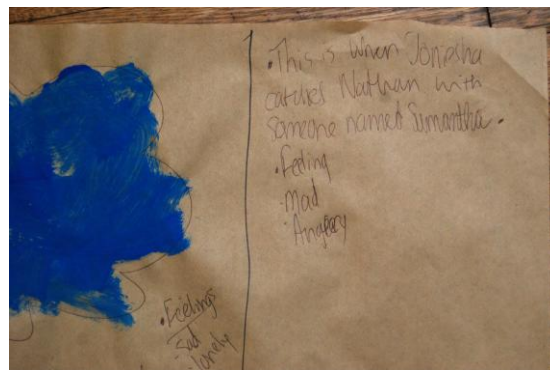 • This is when Toniesha
catches Nathan with
someone named Sumantha.
• Feeling
• Mad
• Angery
• Feelings
• Sad
• lonely